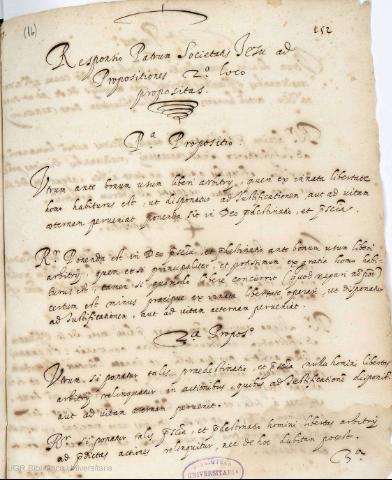 (16)
152
Responsio Patrum Societatis Iesu ad
Propositiones 2.º loco
propositas.
P.ª Propositio.
Utrum ante bonum usum liberi arbitrij, quem ex innata libertate
homo habiturus est, ut disponatur ad Iustificationem, aut ad vitam
æternam perveniat ponenda sit in Deo prædestinatio, et
Rº Ponenda est in Deo et prædestinatio ante bonum usum liberi
arbitrij, quem et principaliter, et ex gratia homo habi-
turus est, tamen si libere concurrit
certum est minus præcipue ex innata libertate operari, ut disponatur
ad Iustificationem, aut ad vitam æternam perveniat.
2.ª Propos.º
Utrum, si ponatur talis praedestinatio, et nulla homini libertas
arbitrij relinquatur in actionibus, quibus ad Iustificationem
aut ad vitam æternam perveniat.
Rº. si ponatur talis et prædestinatio homini libertas arbitrij
ad actiones relinquitur, nec de hoc dubitari potest.
3.ª
UGR Biblioteca Universitaria
BIBLIOTECA
UNIVERSITARIA